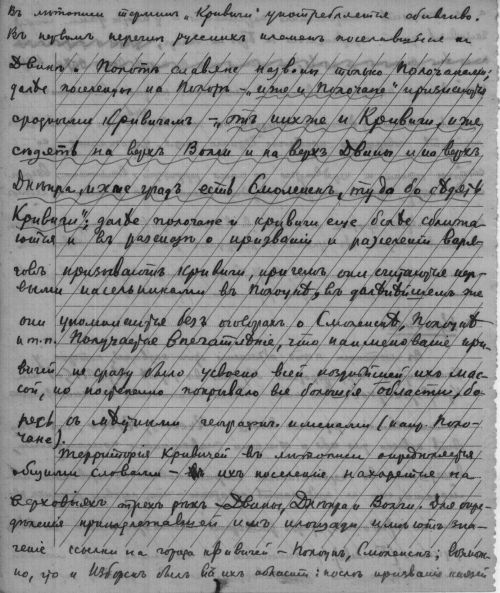 Въ лѣтописи терминъ „Кривичи" употребляется обивчиво.
Въ первомъ перечнѣ русскихъ племенъ поселившіеся на
Двинѣ и Полотѣ славяне названы только Полочанами,
далѣе поселенцы на Полотѣ – „иже и Полочане" признаются
сродными Кривичамъ – „отъ нихъже и Кривичи, иже
сѣдятъ на верхъ Волги и на верхъ Двины и на верхъ
Днѣпра, ихже градъ есть Смоленскъ, туда бо сѣдятъ
Кривичи"; далѣе полочане и кривичи еще болѣе сближа-
ются и въ разсказѣ о призваніи и разселеніи варя-
говъ призываютъ Кривичи, причемъ они считаются пер-
выми насельниками въ Полоцкѣ, въ дальнѣйшемъ же
они упоминаются безъ оговорокъ о Смоленскѣ, Полоцкѣ
и т.п. Получается впечатлѣніе, что наименованіе кри-
вичей не сразу было усвоено всей позднѣйшей ихъ мас-
сой, но постепенно покрывало все большія области, бо-
рясь съ мѣстными географич. именами (напр. Поло-
чане).
Территорія Кривичей въ лѣтописи опредѣляется
общими словами – ихъ поселеніе находится на
верховьяхъ трехъ рѣкъ – Двины, Днѣпра и Волги. Для опре-
дѣленія принадлежавшей имъ площади имѣютъ зна-
ченіе ссылки на города кривичей – Полоцкъ, Смоленскъ; возмож-
но, что и Изборскъ былъ въ ихъ области: послѣ призванія князей